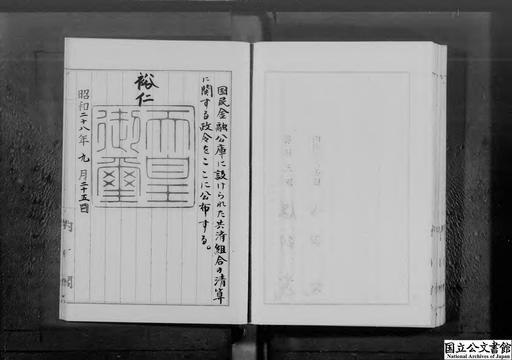 国民金融公庫に設けられた共済組合の清算
に関する政令をここに公布する。
裕仁
天皇
御璽
昭和二十八年九月二十五日
内閣
国立公文書館
National Archives of Japan